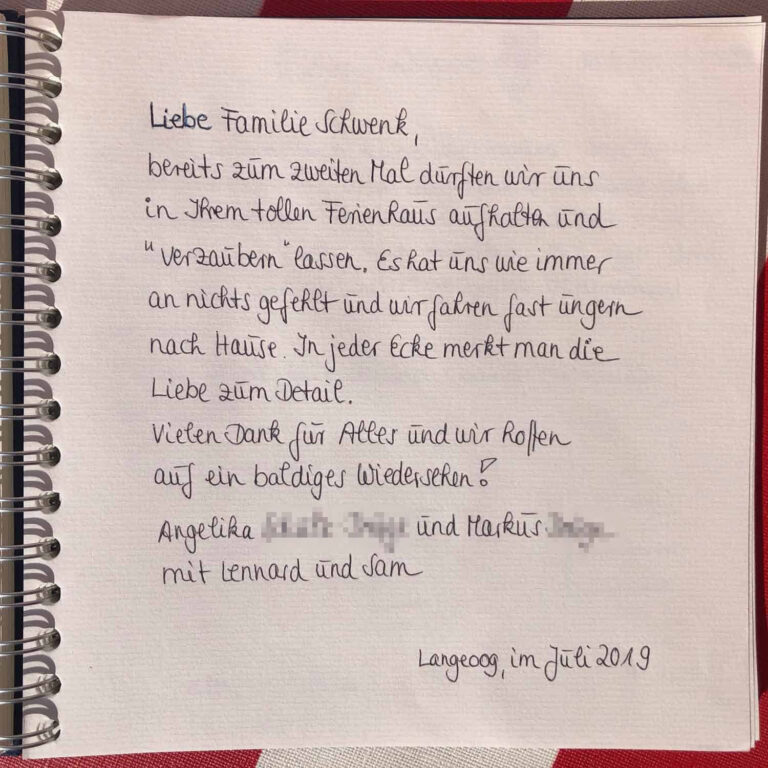 Liebe Familie Schwenk,
bereits zum zweiten Mal durften wir uns
in Ihrem tollen Ferienhaus aufhalten und
"verzaubern" lassen. Es hat uns wie immer
an nichts gefehlt und wir fahren fast ungern
nach Hause. In jeder Ecke merkt man die
Liebe zum Detail.
Vielen Dank für Alles und wir hoffen
auf ein baldiges Wiedersehen!
Angelika und Markus
mit Lennard und Sam
Langeoog, im Juli 2019